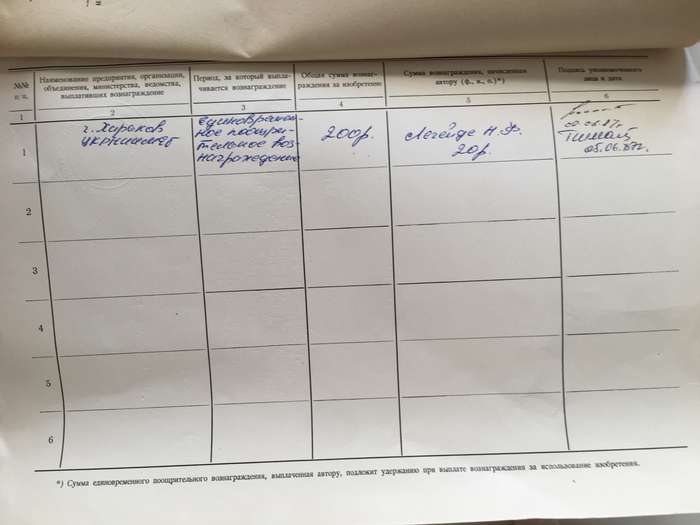 №№ п. п.
Наименование предприятия, организации,
объединения, министерства, ведомства,
выплативших вознаграждение
Период, за который выпла-
чивается вознаграждение
Общая сумма вознаг-
раждения за изобретение
Сумма вознаграждения, начисленная
автору (ф., и., о.)*)
Подпись уполномоченного
лица и дата
1
2
3
4
5
6
1
г. Харьков
УкрНИИМет
единовремен-
ное поощри-
тельное воз-
награждение
200р.
Легейде Н. Ф.
20р.
05.06.87г.
2
3
4
5
6
*) Сумма единовременного поощрительного вознаграждения, выплаченная автору, подлежит удержанию при выплате вознаграждения за использование изобретения.